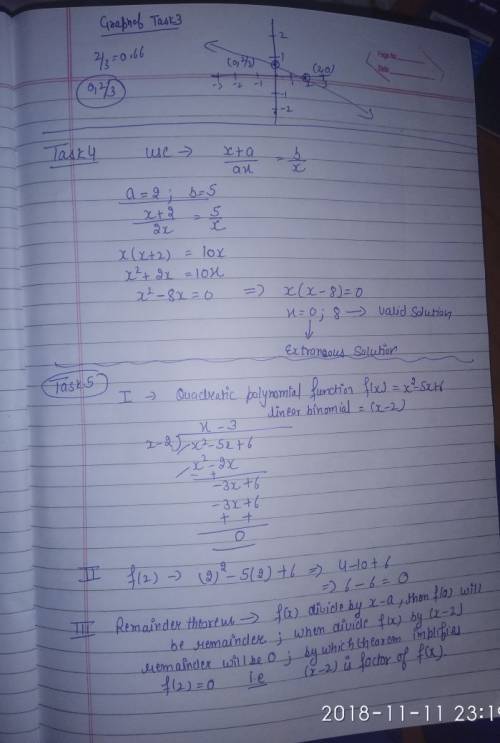 Graph of Task3
2/3 = 0.66
0, 2/3
2
1
(0, 2/3)
(2,0)
-3 -2 -1 1 2 3
-1
-2
Page No.
Date
Task 4 use → x+a/ax = b/x
a = 2 ; b = 5
x+2/2x = 5/x
x(x+2) = 10x
x²+2x = 10x
x²-8x = 0 => x(x-8) = 0
x = 0 ; 8 → valid solution
Extraneous Solution
Task 5
I → Quadratic polynomial function f(x) = x²-5x+6
linear binomial = (x-2)
x - 3
x-2 x²-5x+6
x²-2x
- +
-3x+6
-3x+6
+ +
0
II f(2) → (2)² - 5(2) + 6 => 4-10+6
=> 6-6 = 0
III Remainder theorem → f(x) divide by x-a, then f(a) will
be remainder ; when divide f(x) by (x-2)
remainder will be 0 ; by which theorem implifies
f(2) = 0 i.e (x-2) is factor of f(x).
2018-11-11 23:19